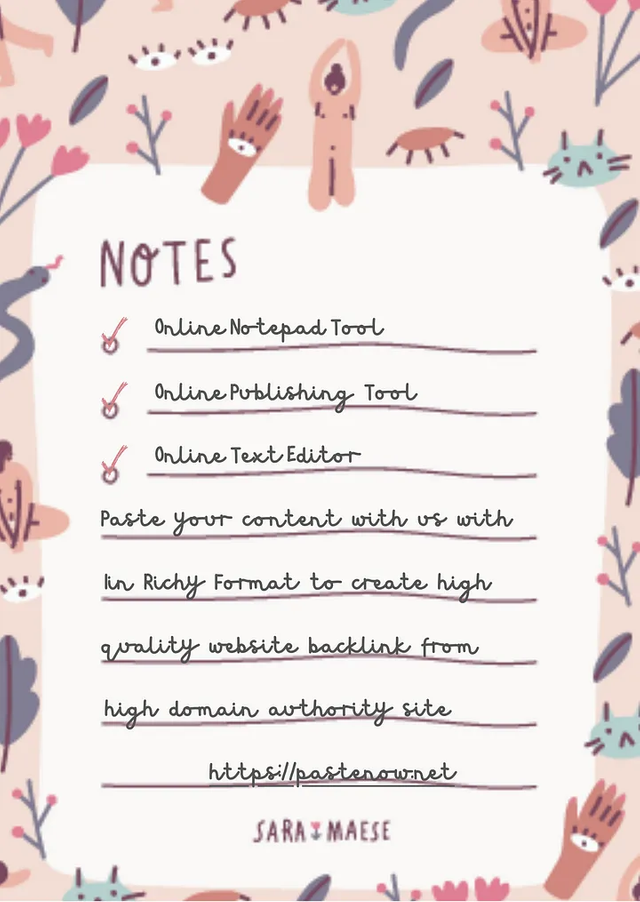 NOTES
Online Notepad Tool
Online Publishing Tool
Online Text Editor
Paste your content with us with
Iin Richy Format to create high
quality website backlink from
high domain authority site
https://pastenow.net
SARA MAESE